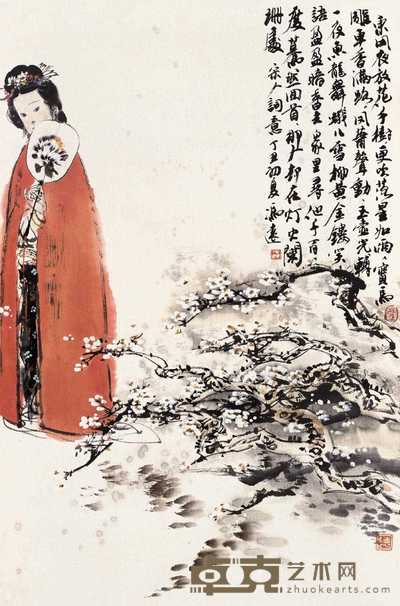 東風夜放花千樹更吹落星如雨寶馬
雕車香滿路鳳簫聲動玉壺光轉
一夜魚龍舞蛾儿雪柳黃金縷笑
語盈盈暗香去衆里尋他千百
度驀然回首那人却在灯火闌
珊處 宋人詞意 丁丑初夏 馮遠
卓克艺术网
zhuokearts.com